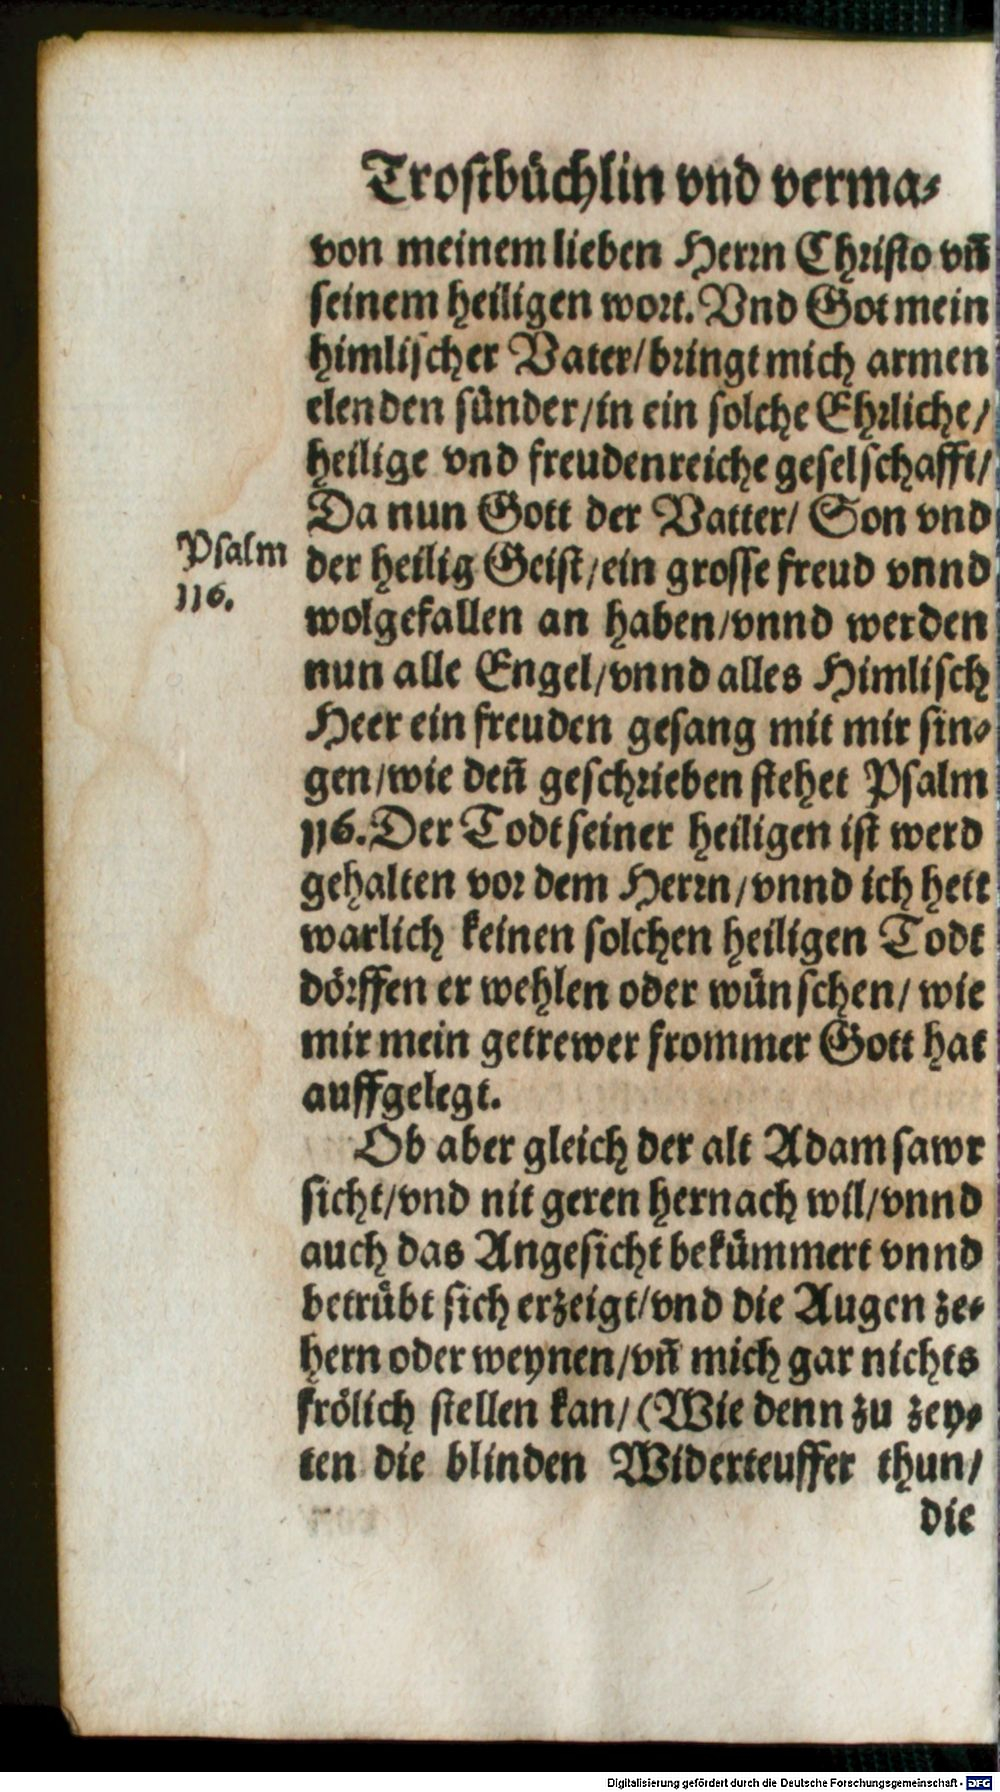 Trostbüchlin vnd verma-
von meinem lieben Herrn Christo vñ
seinem heiligen wort. Vnd Got mein
himlischer Vater/bringt mich armen
elenden sünder/in ein solche Ehrliche/
heilige vnd freudenreiche geselschafft/
Da nun Gott der Vatter/ Son vnd
Psalm
116.
der heilig Geist/ein grosse freud vnnd
wolgefallen an haben/vnnd werden
nun alle Engel/vnnd alles Himlisch
Heer ein freuden gesang mit mir sin-
gen/wie deñ geschrieben stehet Psalm
116. Der Todt seiner heiligen ist werd
gehalten vor dem Herrn/vnnd ich hett
warlich keinen solchen heiligen Todt
dörffen er wehlen oder wünschen/ wie
mir mein getrewer frommer Gott hat
auffgelegt.
Ob aber gleich der alt Adam sawr
sicht/vnd nit geren hernach wil/vnnd
auch das Angesicht bekümmert vnnd
betrübt sich erzeigt/vnd die Augen ze-
hern oder weynen/vñ mich gar nichts
frölich stellen kan/(Wie denn zu zey-
ten die blinden Widerteuffer thun/
die
Digitalisierung gefördert durch die Deutsche Forschungsgemeinschaft - DFG